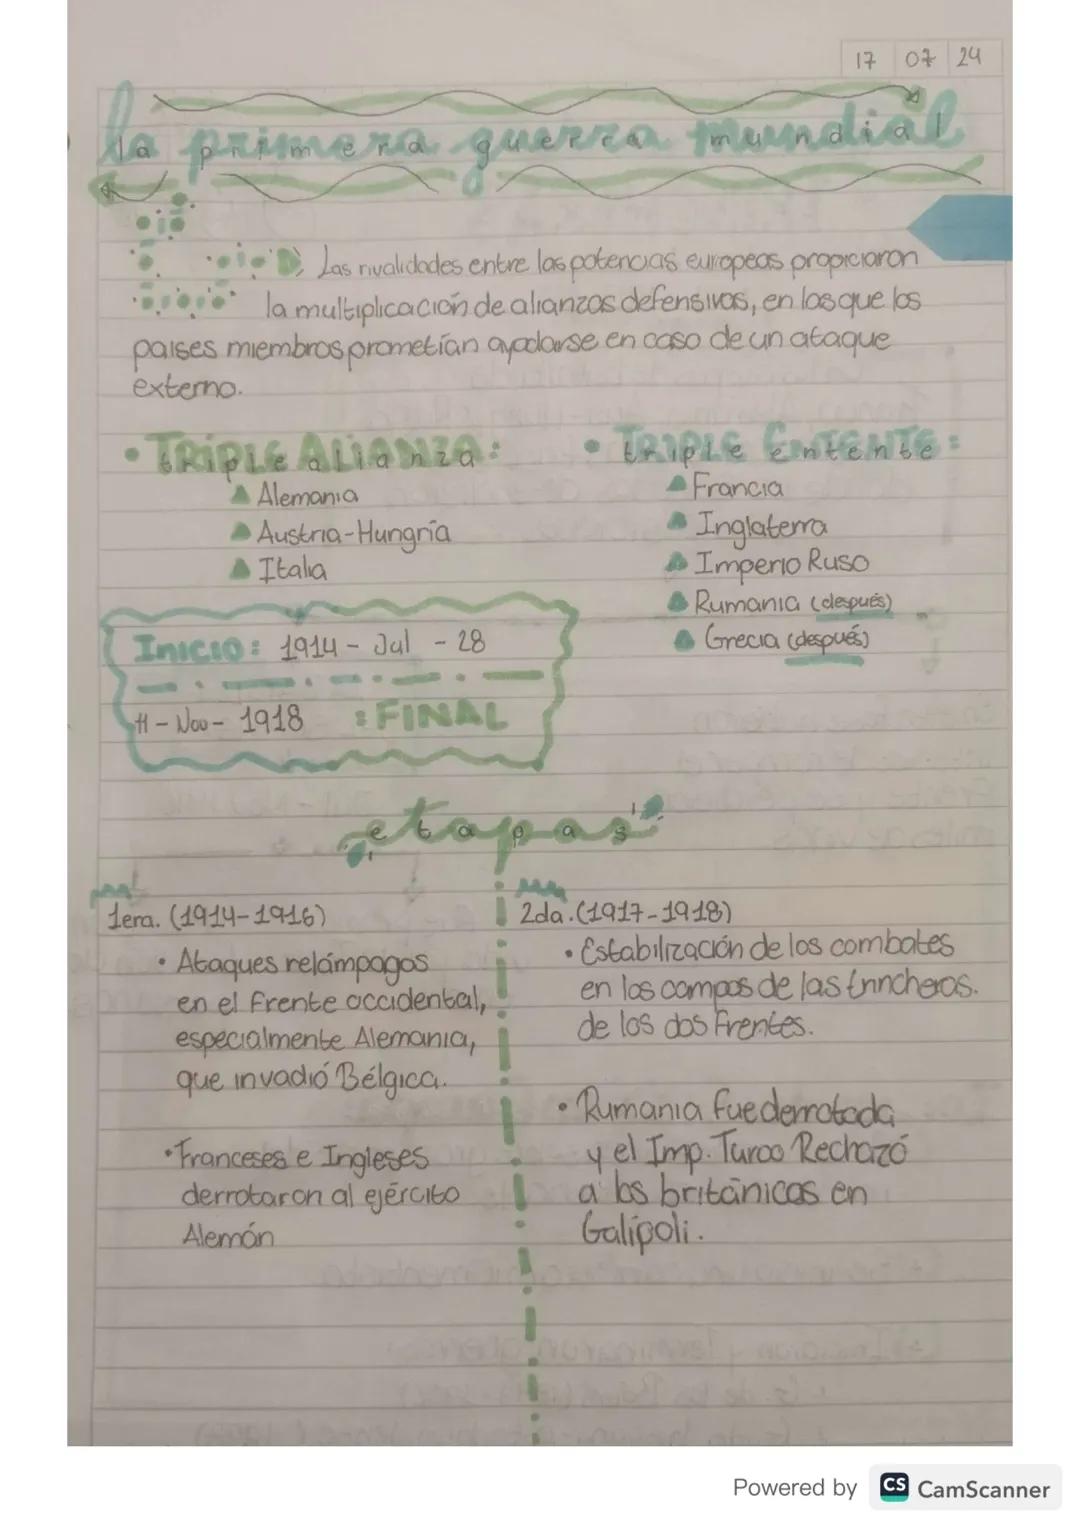 17 07 24
la primera guerra mundial
Las rivalidades entre las potencias europeas propiciaron
la multiplicación de alianzas defensivas, en las que los
paises miembros prometían ayudarse en caso de un ataque
externo.
• TRIPLE ALIANZA:
triple alianza
Alemania
Austria-Hungría
Italia
• TRIPLE ENTENTE:
triple entente
Francia
Inglaterra
Imperio Ruso
Rumania (después)
Grecia (después)
INICIO: 1914 - Jul - 28
11 - Nov - 1918 : FINAL
etapas
1era. (1914-1916)
• Ataques relámpagos
en el frente occidental,
especialmente Alemania,
que invadió Bélgica.
• Franceses e Ingleses
derrotaron al ejército
Alemán
2da. (1917-1918)
• Estabilización de los combates
en los campos de las trincheras.
de los dos frentes.
• Rumania fue derrotada
y el Imp. Turco Rechazó
a los británicos en
Galípoli.
Powered by CS CamScanner